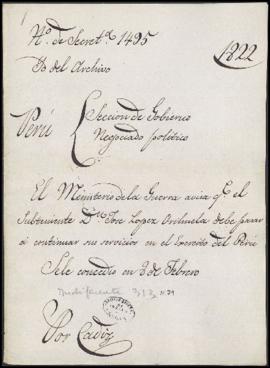 Nº. de Secretª 1495
1822
Yd del Archivo
Perú
Seccion de Gobierno
Negociado politico
El Ministerio de la Guerra avisa qᵉ el
Subteniente Dⁿ Jose Lopez Orihuela debe pasar
á continuar sus servicios en el Exercito del Perú
Se le concedio en 2 de Febrero
Indiferente 313 N 29
Por Cadiz